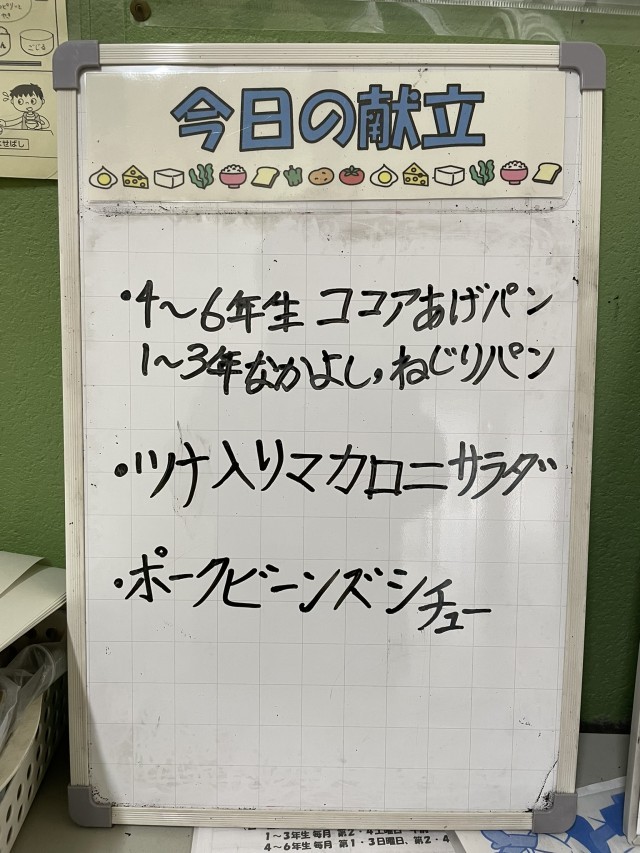 今日の献立
・4〜6年生 ココアあげパン
1〜3年なかよし,ねじりパン
・ツナ入りマカロニサラダ
・ポークビーンズシチュー
ごじる
せばし
4〜6年生 毎月 第1・3日曜日、第2・4